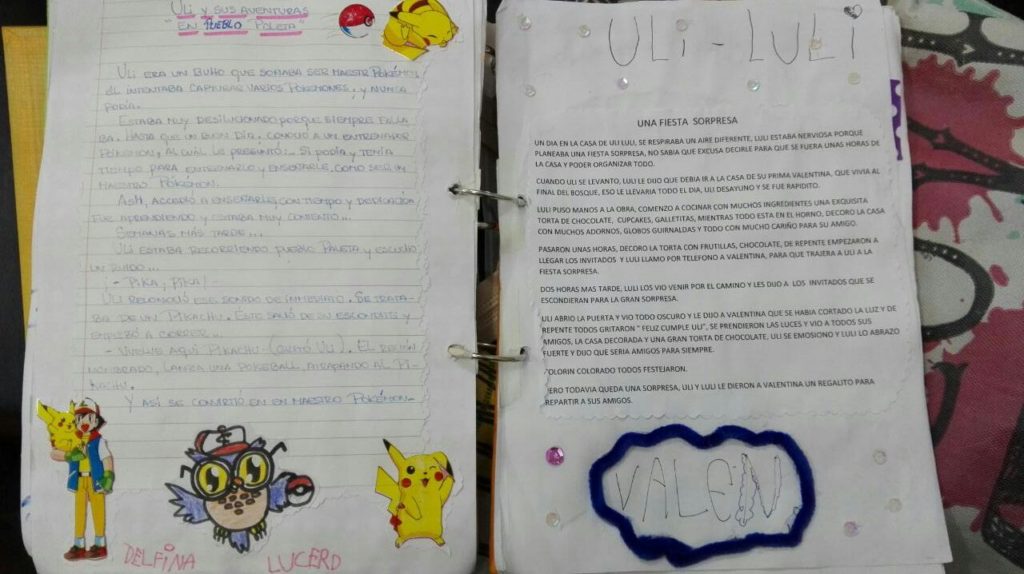 ULI Y SUS AVENTURAS
"EN PUEBLO PALETA"
ULI ERA UN BUHO QUE SOÑABA SER MAESTR POKÉMON
EL INTENTABA CAPTURAR VARIOS POKEMONES. Y NUNCA
PODÍA.
ESTABA MUY DESILUCIONADO PORQUE SIEMPRE FALLA
BA. HASTA QUE UN BUEN DÍA. CONOCIÓ A UN ENTRENADOR
POKEMON, AL CUAL LE PREGUNTÓ:.. SI PODÍA Y TENÍA
TIEMPO PARA ENTRENARLO Y ENSEÑARLE, COMO SER UN
MAESTRO POKEMON.
ASH, ACCEDIÓ A ENSEÑARLE, CON TIEMPO Y DEDICACIÓN
FUE APRENDIENDO Y ESTABA MUY CONTENTO...
SEMANAS MÁS TARDE...
ULI ESTABA RECORRIENDO PUEBLO PALETA Y ESCUCHO
UN RUIDO...
¡- PIKA, PIKA!-
ULI RECONOCIÓ ESE SONIDO DE INMEDIATO. SE TRATA-
BA DE UN PIKACHU. ESTE SALIÓ DE SU ESCONDITE Y
EMPEZÓ A CORRER...
- VUELVE AQUÍ PIKACHU- (GRITÓ ULI). EL RECIÉN
NOMBRADO, LANZA UNA POKEBALL, ATRAPANDO AL PI-
KACHU.
Y ASÍ SE CONVIRTIÓ EN MAESTRO POKÉMON-
DELFINA LUCERO
ULi - LULi
UNA FIESTA SORPRESA
UN DIA EN LA CASA DE ULI LULI, SE RESPIRABA UN AIRE DIFERENTE, LULI ESTABA NERVIOSA PORQUE
PLANEABA UNA FIESTA SORPRESA, NO SABIA QUE EXCUSA DECIRLE PARA QUE SE FUERA UNAS HORAS DE
LA CASA Y PODER ORGANIZAR TODO.
CUANDO ULI SE LEVANTO, LULI LE DIJO QUE DEBIA IR A LA CASA DE SU PRIMA VALENTINA, QUE VIVIA AL
FINAL DEL BOSQUE, ESO LE LLEVARIA TODO EL DIA, ULI DESAYUNO Y SE FUE RAPIDITO.
LULI PUSO MANOS A LA OBRA, COMENZO A COCINAR CON MUCHOS INGREDIENTES UNA EXQUISITA
TORTA DE CHOCOLATE, CUPCAKES, GALLETITAS, MIENTRAS TODO ESTA EN EL HORNO, DECORO LA CASA
CON MUCHOS ADORNOS, GLOBOS GUIRNALDAS Y TODO CON MUCHO CARIÑO PARA SU AMIGO.
PASARON UNAS HORAS, DECORO LA TORTA CON FRUTILLAS, CHOCOLATE, DE REPENTE EMPEZARON A
LLEGAR LOS INVITADOS Y LULI LLAMO POR TELEFONO A VALENTINA, PARA QUE TRAJERA A ULI A LA
FIESTA SORPRESA.
DOS HORAS MAS TARDE, LULI LOS VIO VENIR POR EL CAMINO Y LES DIJO A LOS INVITADOS QUE SE
ESCONDIERAN PARA LA GRAN SORPRESA.
ULI ABRIO LA PUERTA Y VIO TODO OSCURO Y LE DIJO A VALENTINA QUE SE HABIA CORTADO LA LUZ Y DE
REPENTE TODOS GRITARON " FELIZ CUMPLE ULI", SE PRENDIERON LAS LUCES Y VIO A TODOS SUS
AMIGOS, LA CASA DECORADA Y UNA GRAN TORTA DE CHOCOLATE. ULI SE EMOSIONO Y LULI LO ABRAZO
FUERTE Y DIJO QUE SERIA AMIGOS PARA SIEMPRE.
OLORIN COLORADO TODOS FESTEJARON.
ERO TODAVIA QUEDA UNA SORPRESA, ULI Y LULI LE DIERON A VALENTINA UN REGALITO PARA
REPARTIR A SUS AMIGOS.
VALEN